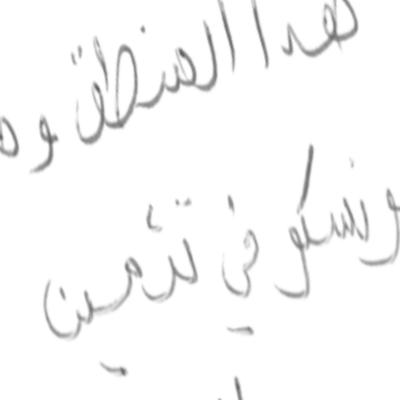 هذا المنطق وه
ونسكو في تأمين